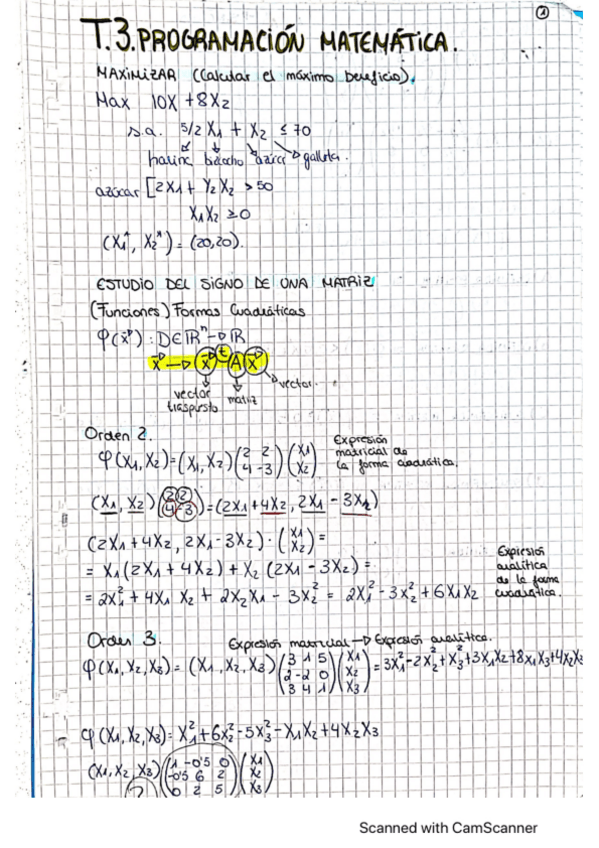 1
T.3.PROGRAMACIÓN MATEMÁTICA.
MAXIMIZAR (Calcular el máximo beneficio).
Max 10X + 8X2
s.a. 5/2 X1 + X2 ≤ 70
harina bizcocho azúcar galleta.
azúcar [2X1 + Y2 X2 > 50
X1 X2 ≥ 0
(X1*, X2*) = (20,20).
ESTUDIO DEL SIGNO DE UNA MATRIZ
(Funciones) Formas Cuadráticas
φ(x) : D∈ℝⁿ → ℝ
x → x t A x
vector traspuesto matriz vector.
Orden 2.
φ(X1, X2) = (X1, X2) (2 2 / 4 -3) (X1 / X2)
Expresión
matricial de
la forma cuadrática.
(X1, X2) (2 2 / 4 -3) = (2X1 + 4X2, 2X1 - 3X2)
(2X1 + 4X2, 2X1 - 3X2) · (X1 / X2) =
= X1 (2X1 + 4X2) + X2 (2X1 - 3X2) =
= 2X1² + 4X1 X2 + 2X2X1 - 3X2² = 2X1² - 3X2² + 6X1X2
Expresión
analítica
de la forma
cuadrática.
Orden 3. Expresión matricial → Expresión analítica.
φ(X1, X2, X3) = (X1, X2, X3) (3 1 5 / 2 -2 0 / 3 4 1) (X1 / X2 / X3) = 3X1² - 2X2² + X3² + 3X1X2 + 8X1X3 + 4X2X3
φ(X1, X2, X3) = X1² + 6X2² - 5X3² - X1X2 + 4X2X3
(X1, X2, X3) (1 -0'5 0 / -0'5 6 2 / 0 2 5) (X1 / X2 / X3)
Scanned with CamScanner